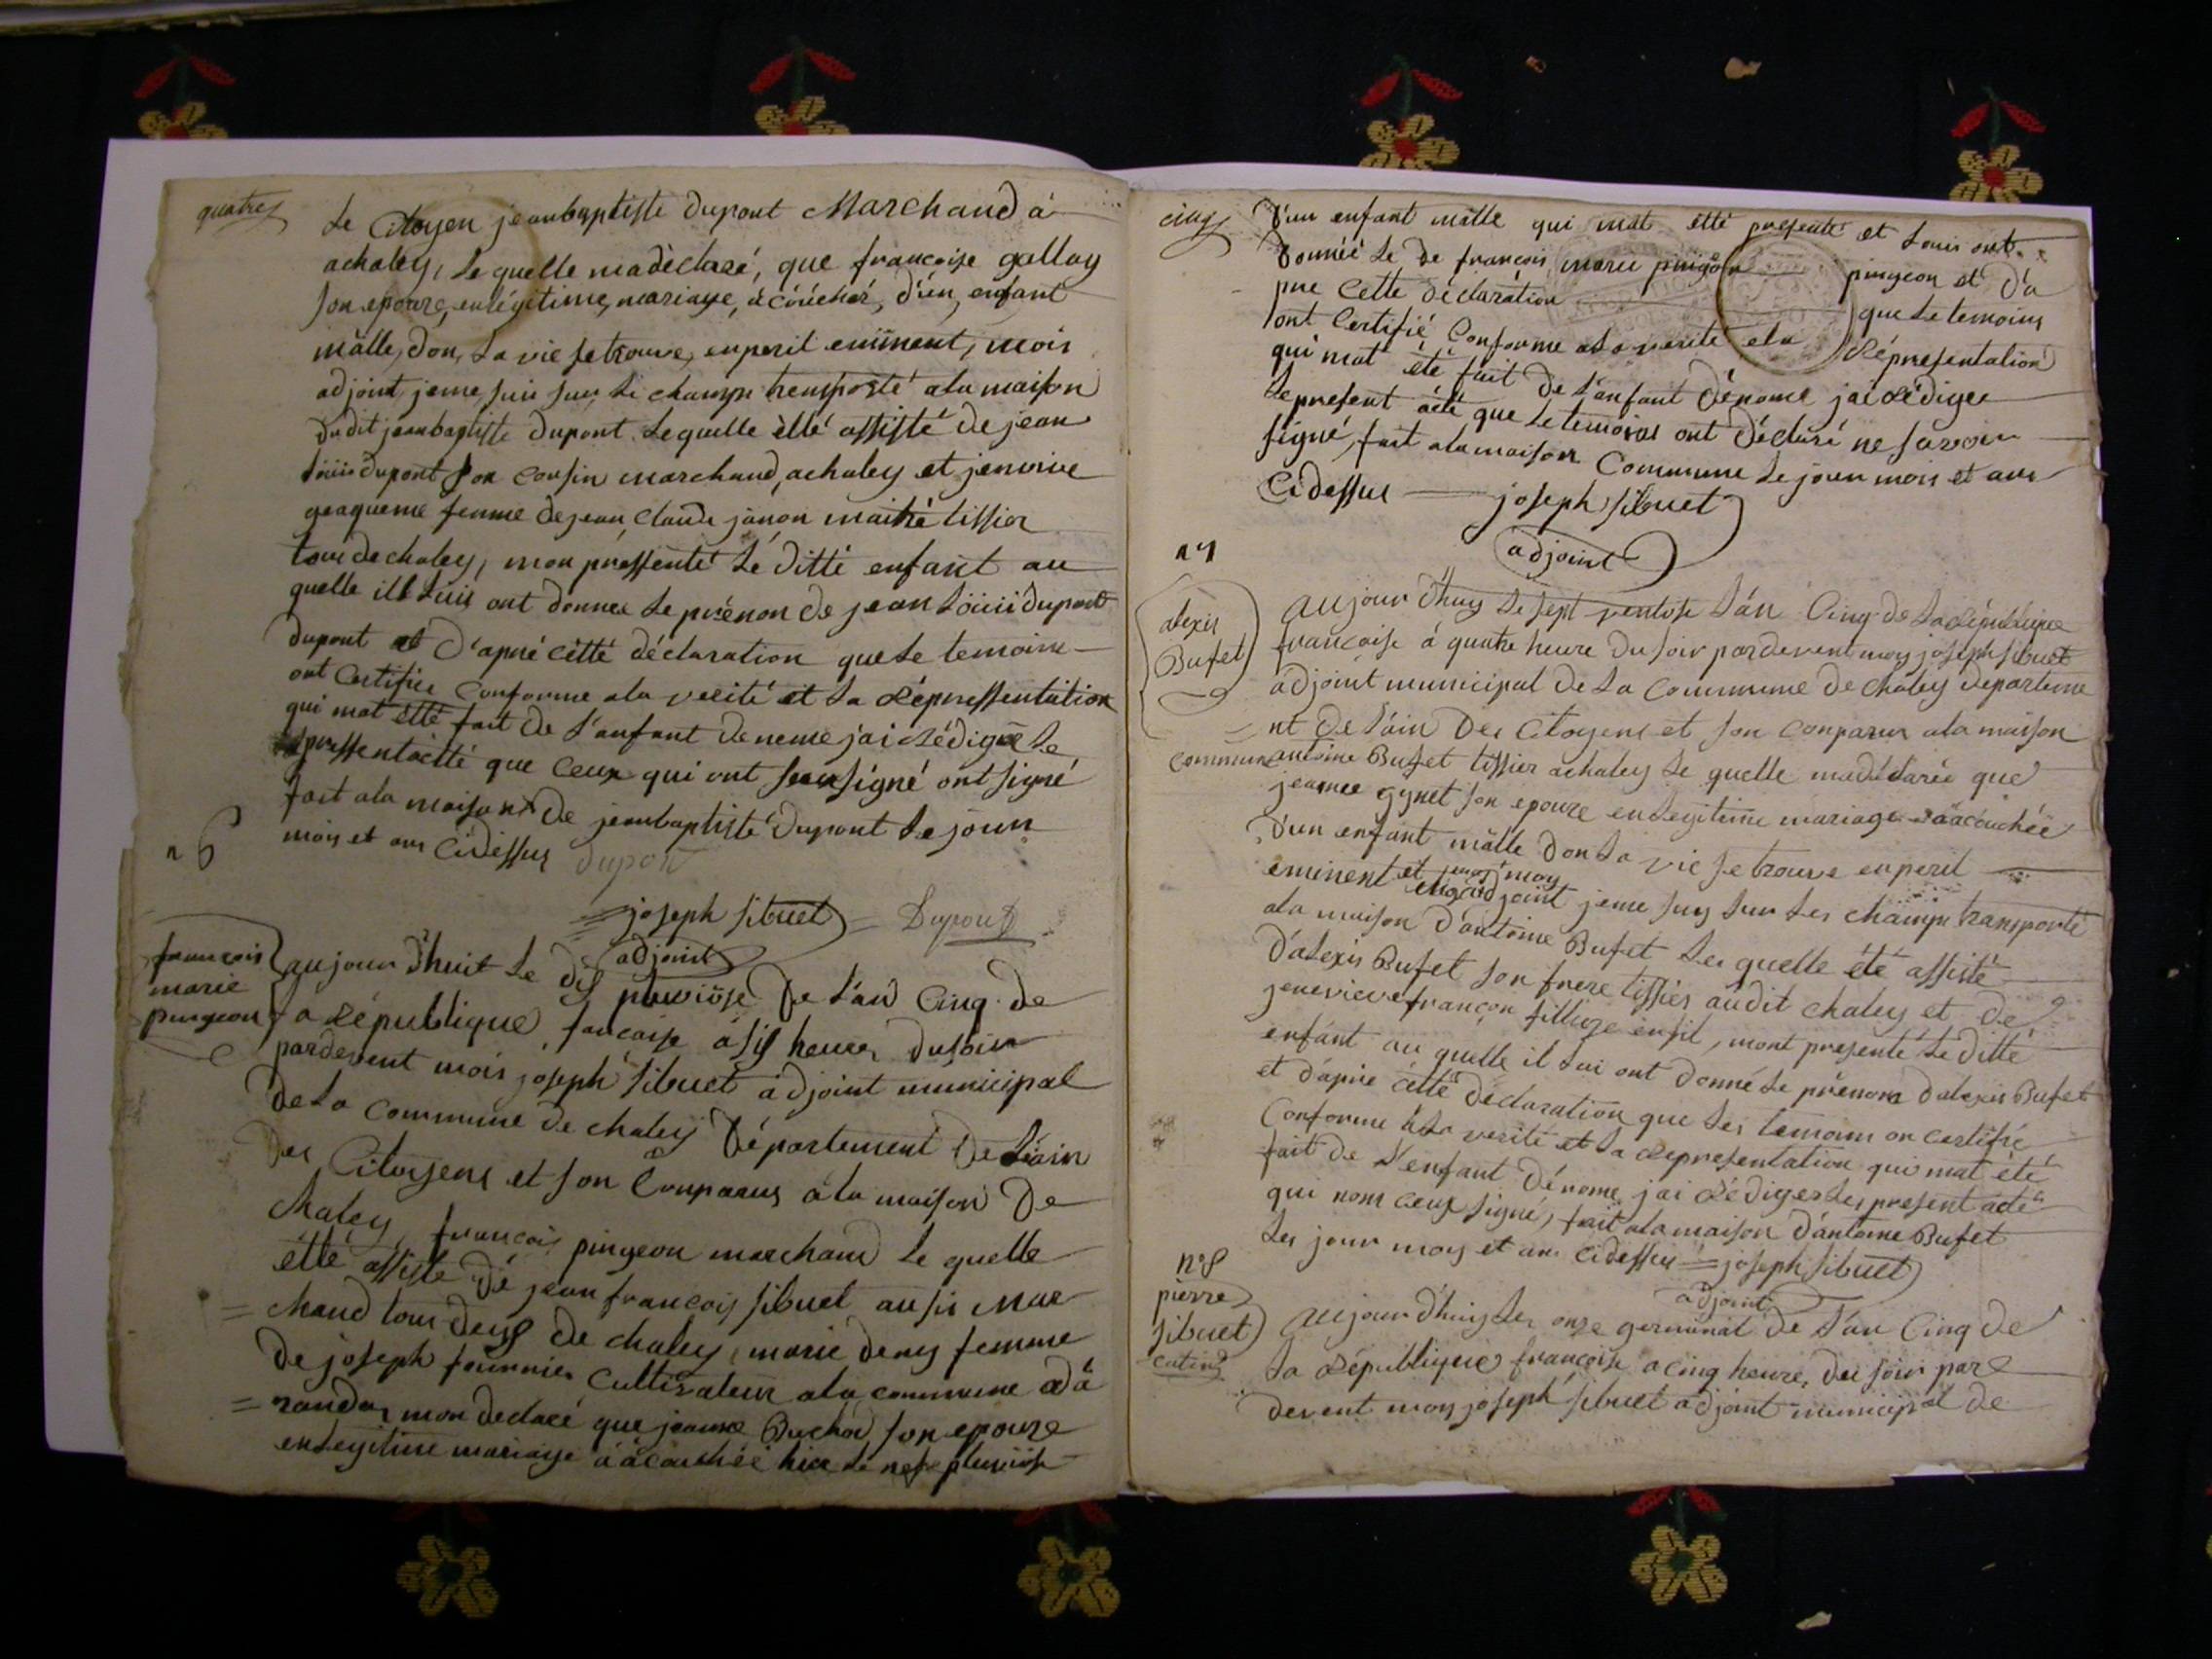 quatre
Le Citoyen jeanbaptiste dupont Marchand a
achaley, Le quelle madéclaré, que francoise gallay
son epouze, en légitime, mariage, a coûchér, d'un, enfant
mâlle, don, La vie se trouve, en peril eminent, mois
adjoint, jeme, suis sur Le champ trensporté ala maison
dudit jeanbaptiste dupont Lequelle èllé assisté de jean
Loüis dupont son Cousin marchand, achaley et jenvive
femme de jean Claude janon maitré tissier
tous de chaley, mon préssenté Lé ditté enfant au
quelle ill Luis ont donnee Le prénon de jean Loüis dupont
dupont et d'apré cétté déclaration que Le temoins
ont Certifiée Conforme ala verité et La Répressentation
qui mat étté fait de L'anfant deneme jai Rédigée Le
pressentactté que Ceux qui ont sousigné ont signé
fait ala maison de jeanbaptiste Dupont Le joun
mois et an Cidessus dupont
joseph sibuet Dupont
adjoint
n 6
francois
marie
pingeon
aujour d'huit Le dis pluviöse de L'an Cinq de
La République francaise à sis heures du soir
pardevent mois joseph Sibuet adjoint municipal
de La Commune de chaley Département De L'ain
des Citoyens et son Conparus a la maison De
Chaley, francois pingeon marchand Le quelle
étté assisté dé jean françois sibuet ausis Mar
= chand tous deux de chaley, marie deny femme
de joseph fournier Cultivateur ala commune d'a
= randas mon declaré que jeanne Buchar son epouze
en Legitime mariage a acouchéé hier Lé nef pluviöse
cinq
d'un enfant mâlle qui mat étté presenté et Louis ont
donnéé Le de francois marie pingön pingeon et d'a
pre Cette déclaration que Le temoins
ont Certifié Conforme ala verité et la Réprésentation
qui mat été fait de L'enfant dénome jai Rédigee
Le present acté que Le temoins ont déclaré ne savoir
signé, fait ala maison Commune Le joun mois et an
Cidessus joseph sibuet
adjoint
n 7
alexis
Bufet
aujour d'huy Le sept ventose L'an Cinq de La République
francaise à quatre heure du soir pardevent moy joseph sibuet
adjoint municipal de La Commune de chaley departeme
= nt de L'ain Des Citoyens et son Conparus ala maison
commune antoine Bufet tissier achaley Le quelle madéclarée que
jeanne gynet son epouze en Legitime mariage a acouchéé
d'un enfant mâlle don La vie se trouve en peril
eminent et moy
adjoint jeme suy sur Les champs transporté
ala maison d'antoine Bufet Les quelle été assisté
d'alexis Bufet son frere tissier audit chaley et de
jenevieve françon, mont presenté Le ditté
enfant au quelle il Lui ont donné Le prénom d'alexis Bufet
et d'aprie cétté déclaration que Les temoins on certifié
Conforme ala verité et La Représentation qui mat été
fait de L'enfant dénomé jai Rédiger Les present acté
qui nom ceux signé, fait ala maison d'antoine Bufet
Les jour moy et an Cidessus = joseph sibuet
adjoint
n° 8
pierre
sibuet
aujour d'huy Les onze germinal de L'an Cinq de
La République françoise a cinq heure, du soir par
devent moy joseph sibuet adjoint municipal de